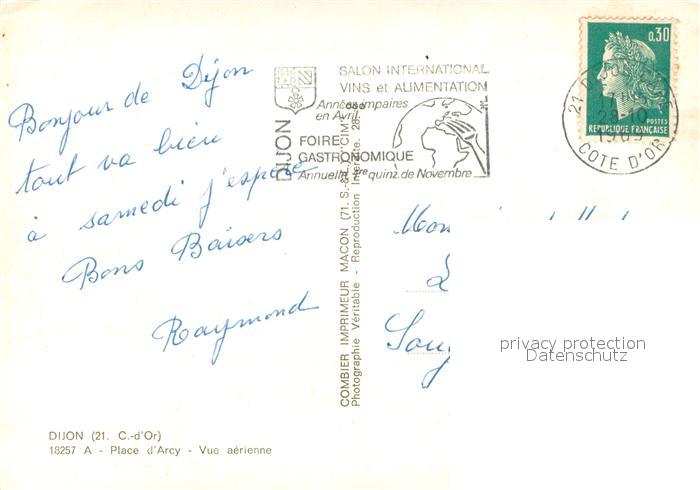 Bonjour de Dijon
tout va bien
à samedi j'espère
Bons Baisers
Raymond
DIJON (21. C.-d'Or)
18257 A - Place d'Arcy - Vue aérienne
COMBIER IMPRIMEUR MACON (71. S.-&-L.) "CIM"
Photographie Véritable - Reproduction Interdite.
DIJON
SALON INTERNATIONAL
VINS et ALIMENTATION
Années impaires
en Avril
FOIRE
GASTRONOMIQUE
Annuelle 1re quinz. de Novembre
0,30
POSTES
REPUBLIQUE FRANÇAISE
21 DIJON
17H
28-10
1969
COTE D'OR
privacy protection
Datenschutz